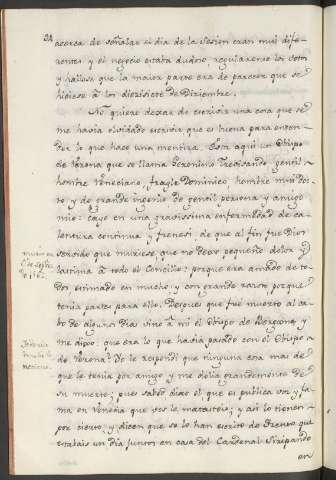 acerca de señalar el dia de la Sesion eran mui dife-
rentes y el negocio estaba dudoso, regularonse los votos
y hallose que la maior parte era de parecer que se
hiciese a los diezisiete de Diziembre.
No quiero dexar de escrivir una cosa que se
me havia olvidado escrivir que es buena para enten-
der lo que hace una mentira. Son aqui un Obispo
de Verona que se llama Jeronimo Trevisando, gentil
hombre Veneciano, frayle Dominico, hombre mui doc-
to y de grande ingenio de gentil persona y amigo
mio: cayo en una gravissima enfermedad de ca-
lentura continua y frenesi de que al fin fue Dios
servido que muriese, que no dexo pequeño dolor y
lastima a todo el Concilio: porque era amado de to-
dos estimado en mucho y con grande razon porque
tenia partes para ello. Despues que fue muerto al ca-
bo de algunos dias vino a mi el Obispo de
me dixo: que era lo que havia pasado con el Obispo
de Verona? Yo le respondi que ninguna cosa mas de
que le tenia por amigo y me dolia grandemente de
su muerte; pues sabed dixo el que es publica voz y fa-
ma en Venecia que vos le matasteis; y asi lo tienen
por cierto, y dicen que se lo han escrito de Trento que
estabais un dia juntos en casa del Cardenal Siripando
en